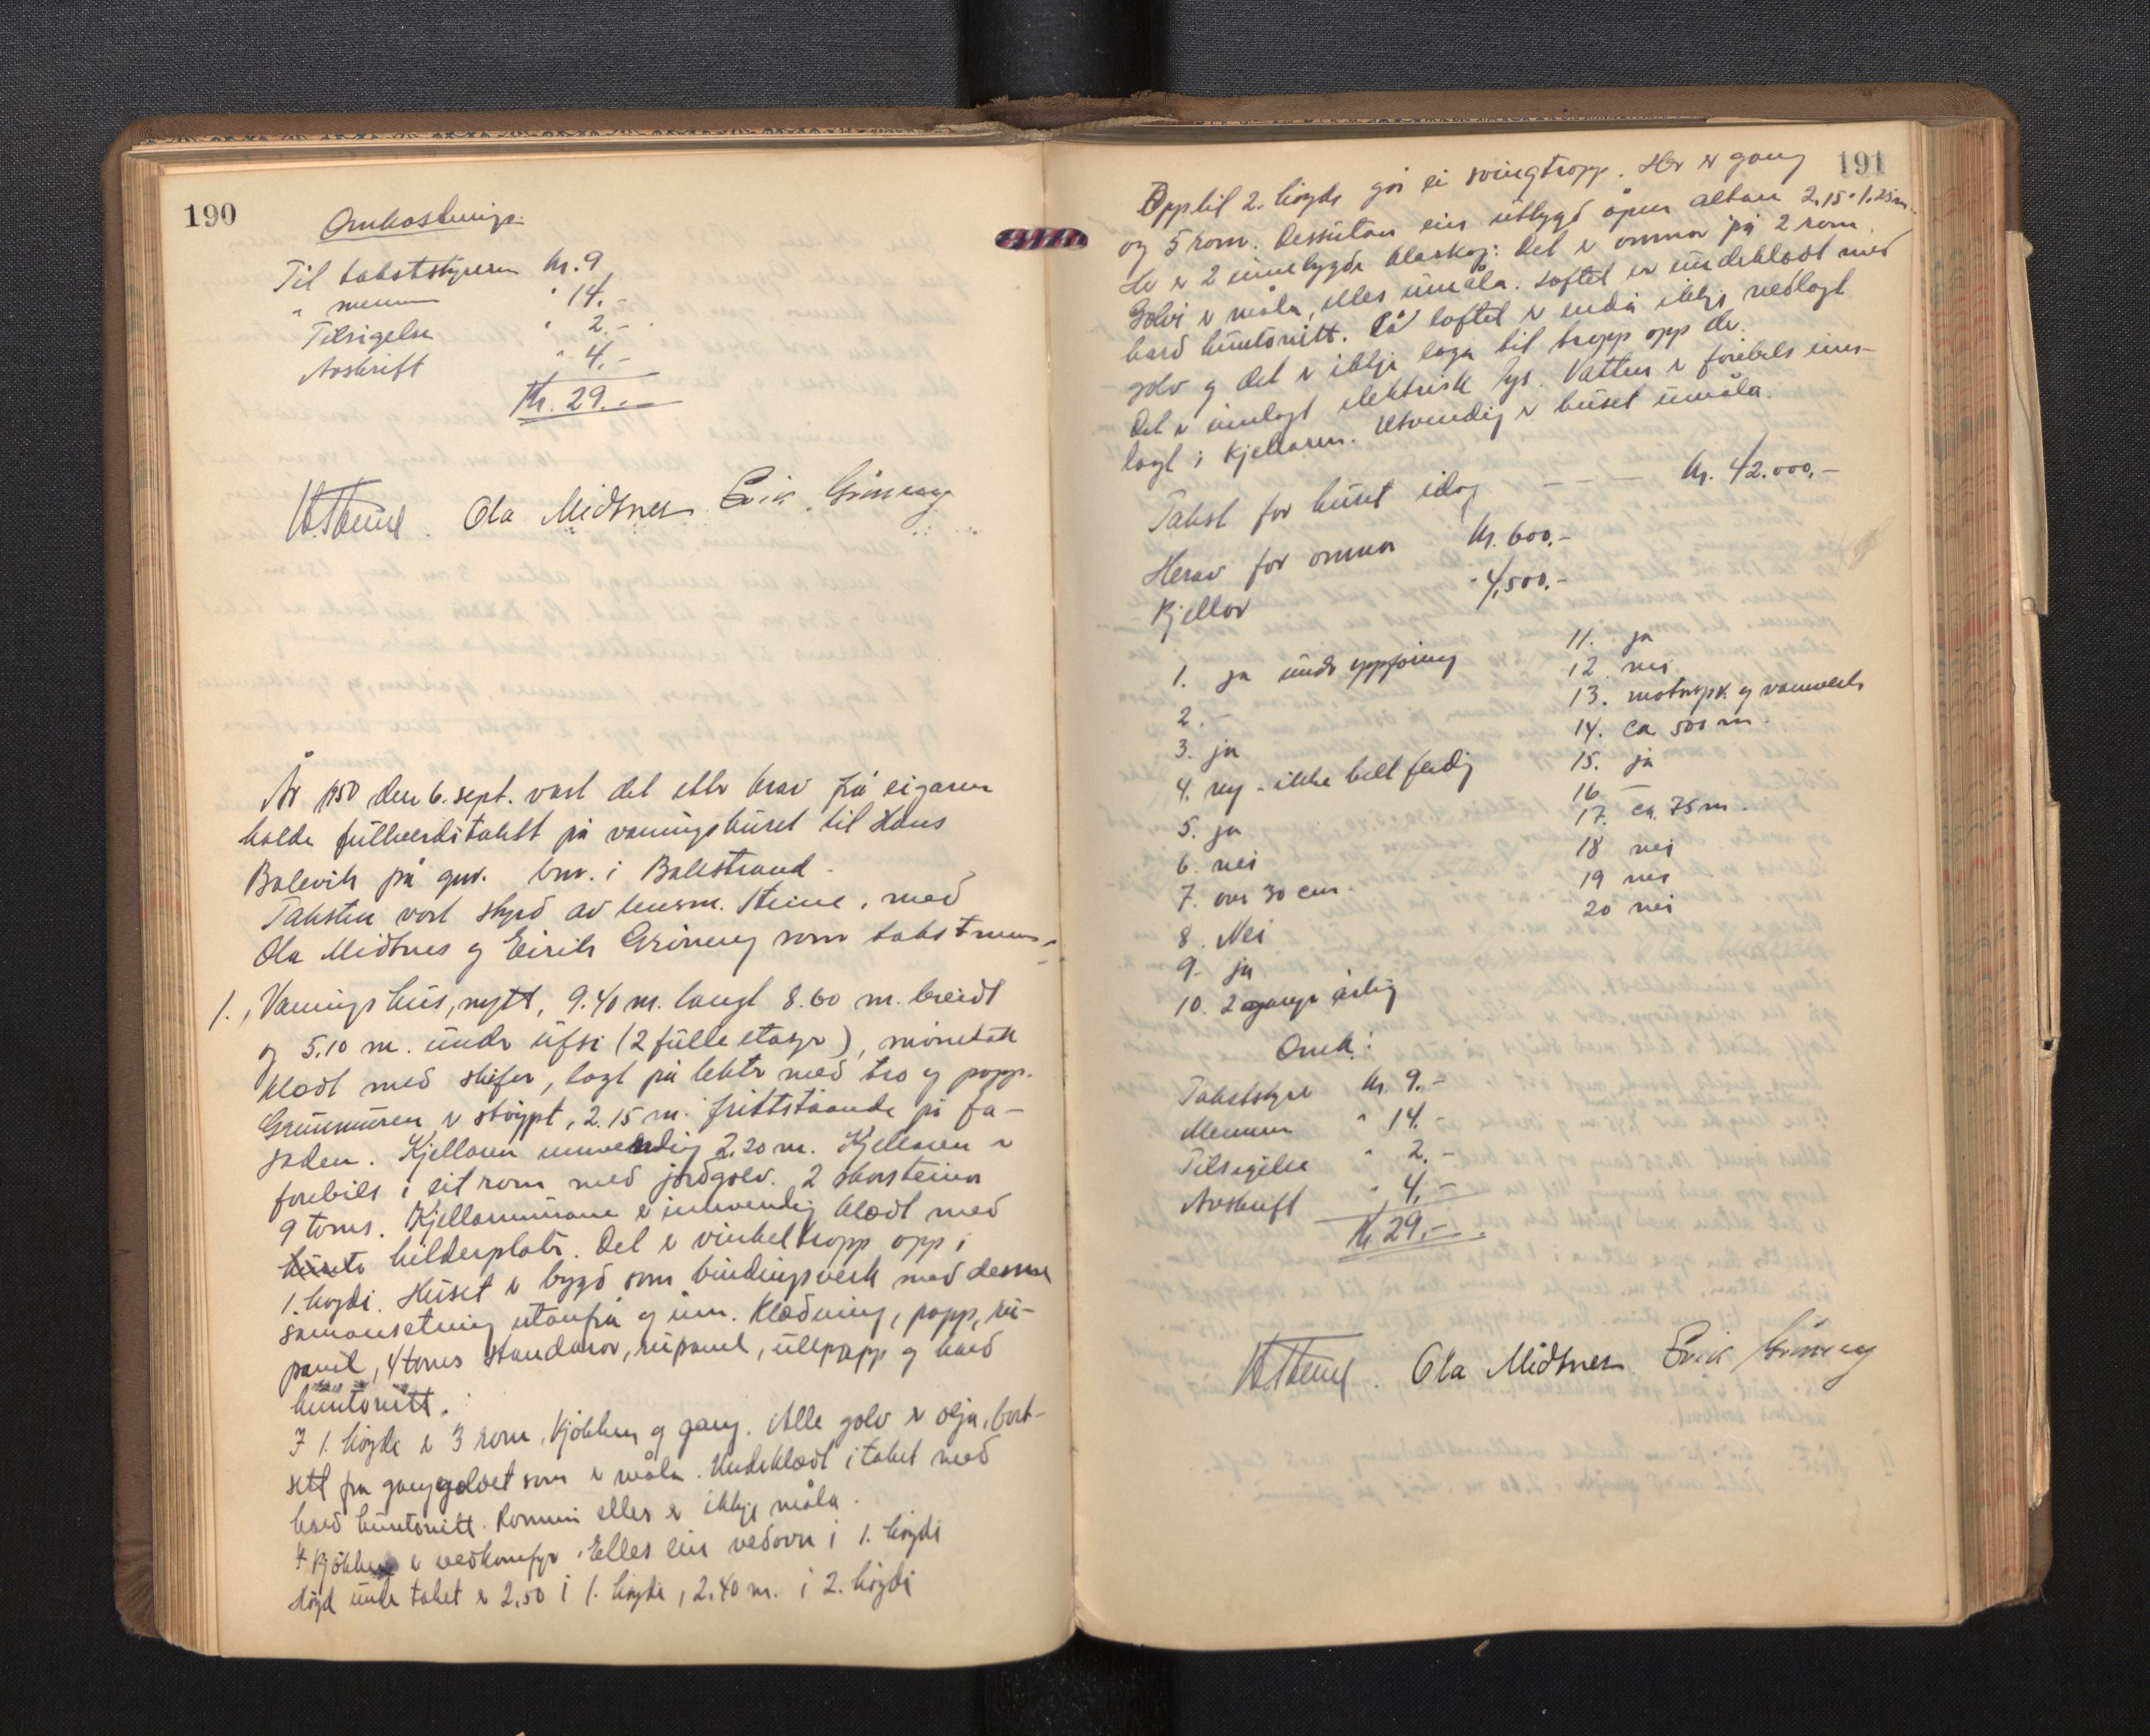 190
Omkostninga.
Til takststyraren kr. 9
" mennene " 14.-
Tilsigelse " 2.-
Avskrift " 4.-
Kr. 29.-
Ola Midtnes Eirik Grinneng
År 1950 den 6. sept. vart det etter krav frå eigaren
halde fullverditakst på våningshuset til Hans
Balevik på gnr. bnr. i Balestrand.
Taksten vart styrd av lensm. Steine, med
Ola Midtnes og Eirik Grinneng som takstmenn.
1., Våningshus, nytt, 9.40 m. langt 8.60 m. breidt
og 5.10 m. under ufsi (2 fulle etasjer), mønetak
klædt med skifer, lagt på lekter med tro og papp.
Grunnmuren er støypt, 2.15 m. frittståande på fa-
saden. Kjellaren innvendig 2.20 m. Kjellaren er
forebils i eit rom med jordgolv. 2 skorsteinar
9 toms. Kjellarmurane er innvendig klædt med
hilderplater. Det er vinkeltropp opp i
1. høgdi. Huset er bygd som bindingsverk med denne
samansetning utanfrå og inn. Klædning, papp, ru-
panel, 4 toms standarar, rupanel, ullpapp og hard
huntonitt.
I 1. høgda er 3 rom, kjøkken og gang. Alle golv er olja, bort-
sett fra ganggolvet som er måla. Underklædt i taket med
hard huntonitt. Rommi elles er ikkje måla.
I kjøkken er vedkomfyr. Elles ein vedovn i 1. høgdi
Høgd under taket er 2.50 i 1. høgda, 2.40 m. i 2. høgdi
191
Opp til 2. høgda går ei svingtropp. Her er gang
og 5 rom. Dessutan ein utbygd open altan 2.15 x 1.25 m.
Her er 2 innebygde klæskap. Det er omnar på 2 rom.
Golvi er måla, elles umåla. Loftet er underklædt med
hard huntonitt. På loftet er endå ikkje nedlagt
golv og det er ikkje laga til tropp opp der.
Det er innlagt elektrisk lys. Vatten er førebels inn-
lagt i kjellaren. Utvendig er huset umåla.
Takst for huset idag - - - kr. 42.000,-
Herav for omnar kr. 600.-
Kjellar " 4,500.-
1. ja under oppføring
2. -
3. ja
4. ny - ikke helt ferdig
5. ja
6. nei
7. over 30 cm.
8. Nei
9. ja
10. 2 ganger årlig
11. ja
12. nei
13. motorspr. og vannverk
14. ca 500 m.
15. ja
16 -
17. ca. 75 m.
18 nei
19 nei
20 nei
Omk:
Takststyre kr. 9.-
Mennene " 14.-
Tilsigelse " 2.-
Avskrift " 4.-
Kr. 29.-
Ola Midtnes Eirik Grinneng